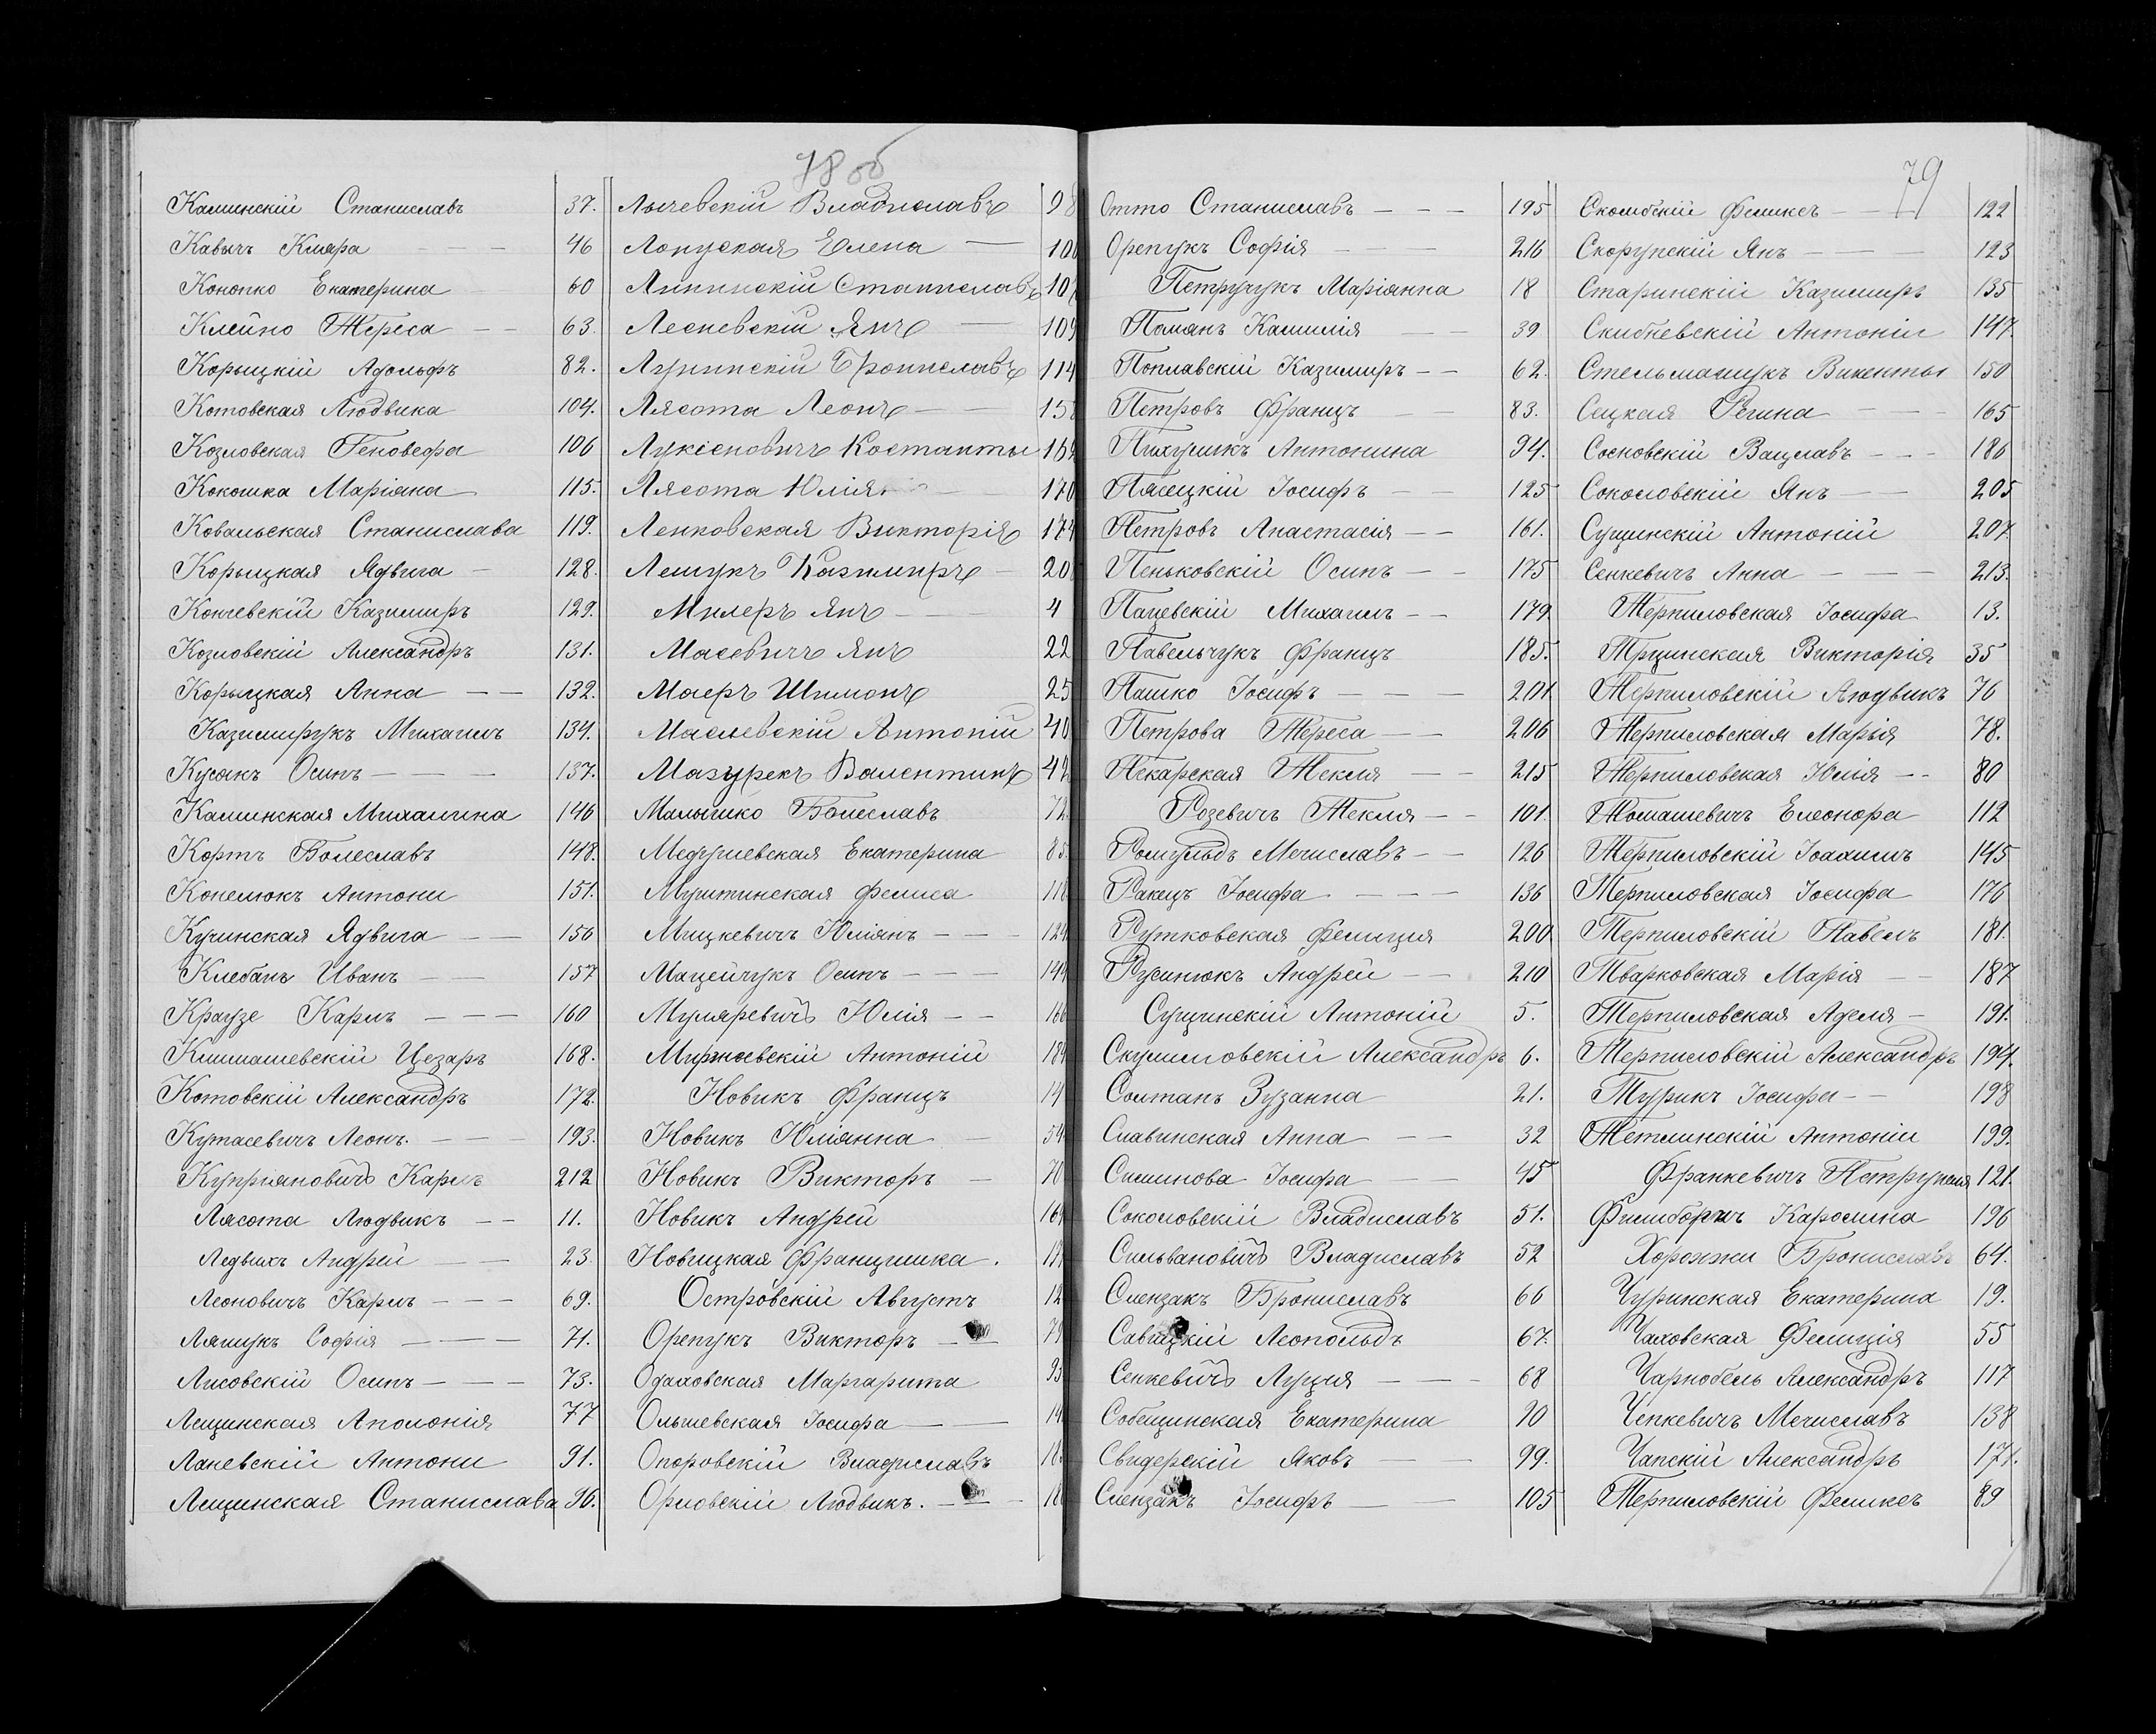 78 об
Каминскій Станиславъ 37.
Кавычъ Кляра 46
Конопко Екатерина 60
Клейно Тереса 63.
Корыцкій Адольфъ 82.
Котовская Людвика 104.
Козловская Геновефа 106
Кокошка Маріяна 115.
Ковальская Станислава 119.
Корыцкая Ядвига 128.
Кончевскій Казимиръ 129.
Козловскій Александръ 131.
Корыцкая Анна 132.
Казимирукъ Михаилъ 134.
Кусакъ Осипъ 137.
Каминская Михалина 146
Кортъ Болеславъ 148.
Конелюкъ Антони 151.
Кучинская Ядвига 156
Клебанъ Иванъ 157
Краузе Карлъ 160
Климашевскій Цезаръ 168.
Котовскій Александръ 172.
Кутасевичъ Леонъ. 193.
Купріяновичъ Карлъ 212
Лясота Людвикъ 11.
Ледвихъ Андрей 23.
Леоновичъ Карлъ 69.
Ляшукъ Софія 71.
Лисовскій Осипъ 73.
Лещинская Аполонія 77
Ланевскій Антони 91.
Лещинская Станислава 96.
Лычевскій Владиславъ 98
Лопуская Елена
Липинскій Станиславъ
Лесневскій Янъ 109
Лупинскій Брониславъ 114
Лясота Леонъ
Лукіеновичъ Костанты
Лясота Юлія 170
Ленковская Викторія 174
Лешукъ Казимиръ
Милеръ Янъ 4
Масевичъ Янъ 22
Маеръ Шимонъ 25
Маслевскій Антоній 40
Мазурекъ Валентинъ 42
Малышко Болеславъ 72.
Медушевская Екатерина 85.
Муштинская Фелиса 118
Мицкевичъ Юліянъ
Мацейчукъ Осипъ
Муляревичъ Юлія 166
Миржіевскій Антоній
Новикъ Францъ
Новикъ Юліянна 54.
Новикъ Викторъ 70
Новикъ Андрей
Новицкая Францишка.
Островскій Августъ
Орепукъ Викторъ
Одаховская Маргарита
Ольшевская Іосифа
Опоровскій Владиславъ
Орловскій Людвикъ.
79
Отто Станиславъ 195
Орепукъ Софія 216
Петручукъ Маріянна 18
Поманъ Камилія 39
Поплавскій Казимиръ 62.
Петровъ Францъ 83.
Пихушкъ Антонина 94.
Пясецкій Іосифъ 125
Петровъ Анастасія 161.
Пеньковскій Осипъ 175
Пацевскій Михаилъ 179.
Павельчукъ Францъ 185.
Пашко Іосифъ 201.
Петрова Тереса 206
Пекарская Текля 215
Розевичъ Текля 101.
Ромуальдъ Мечиславъ 126
Ракецъ Іосифа 136
Рутковская Фелиция 200
Русинюкъ Андрей 210
Сущинскій Антоній 5.
Скушиловскій Александръ 6.
Солтанъ Зузанна 21.
Славинская Анна 32
Симинова Іосифа 45
Соколовскій Владиславъ 51.
Сильвановичъ Владиславъ 52
Слензакъ Брониславъ 66
Савицкій Леопольдъ 67.
Сенкевичъ Луция 68
Собещинская Екатерина 90
Свидерскій Яковъ 99.
Слензакъ Іосифъ 105
Скомбскій Феликсъ 122
Скорупскій Янъ 123
Старинскій Казимиръ 135
Скибневскій Антоній 147.
Стельмашукъ Викенты 150
Сецкая Регина 165
Сосновскій Вацлавъ 186
Соколовскій Янъ 205
Сущинскій Антоній 207.
Сенкевичъ Анна 213.
Терпиловская Іосифа 13.
Трцинская Викторія 35
Терпиловскій Людвикъ 76
Терпиловская Марыя 78.
Терпиловская Юлія 80
Томашевичъ Елеонора 112
Терпиловскій Іоахимъ 145
Терпиловская Іосифа 176
Терпиловскій Павелъ 181.
Тварковская Марія 187
Терпиловская Аделя 191.
Терпиловскій Александръ 194.
Турикъ Іосифа 198
Тетлинскій Антоній 199.
Франкевичъ Петрунеля 121.
Каролина 196
Хоружи Брониславъ 64.
Чуринская Екатерина 19.
Чаховская Фелиція 55
Чарнобель Александръ 117
Чепкевичъ Мечиславъ 138
Чапскій Александръ 171.
Терпиловскій Феликсъ 89